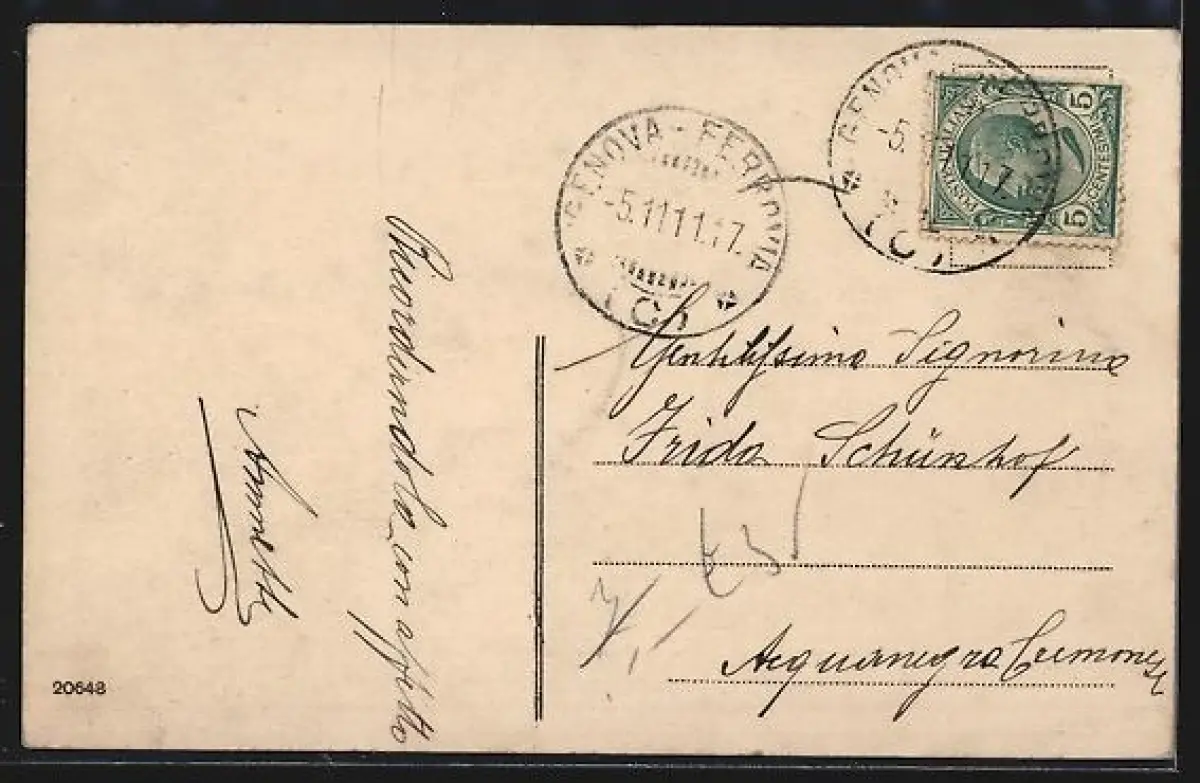 GENOVA-FERROVIA
-5.11 11.17.
GENOVA
-5. 11.17.
POSTE ITALIANE
CENTESIMI
5
5
Gentilissima Signorina
Frida Schünhof
Acquanegra Cremonese
Ricordandola con affetto
20648